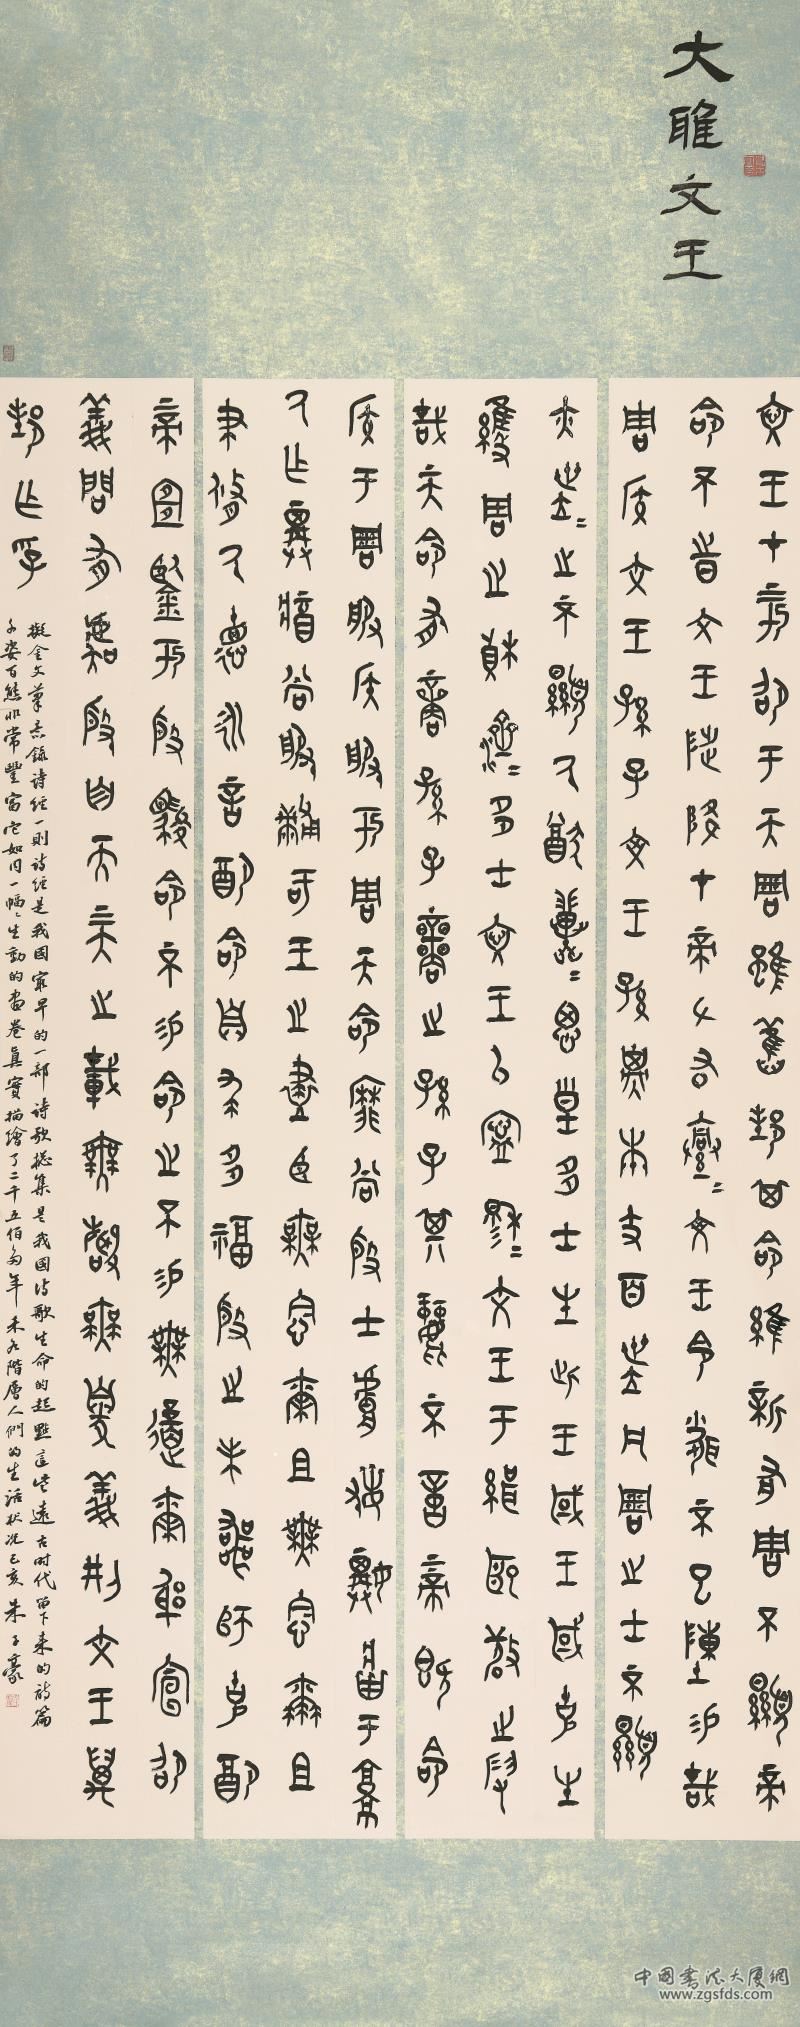 大雅文王
文王在上昭于天周雖舊邦其命維新有周不顯帝
命不時文王陟降在帝左右亹亹文王令聞不已陳錫哉
周侯文王孫子文王孫子本支百世凡周之士不顯
亦世世之不顯厥猶翼翼思皇多士生此王國王國克生
維周之楨濟濟多士文王以寧穆穆文王于緝熙敬止假
哉天命有商孫子商之孫子其麗不億上帝既命
侯于周服侯服于周天命靡常殷士膚敏祼將于京
厥作祼將常服黼冔王之藎臣無念爾祖無念爾祖
聿脩厥德永言配命自求多福殷之未喪師克配
上帝宜鑒于殷駿命不易命之不易無遏爾躬宣昭
義問有虞殷自天上天之載無聲無臭義刑文王萬
邦作孚
擬金文筆意錄詩經一則詩經是我國最早的一部詩歌總集是我國詩歌生命的起點這些遠古时代留下来的詩篇
千姿百態非常豐富它如同一幅幅生動的畫卷真實描繪了二千五佰多年来各階層人們的生活狀况己亥朱子豪
中國書法大廈網
www.zgsfds.com